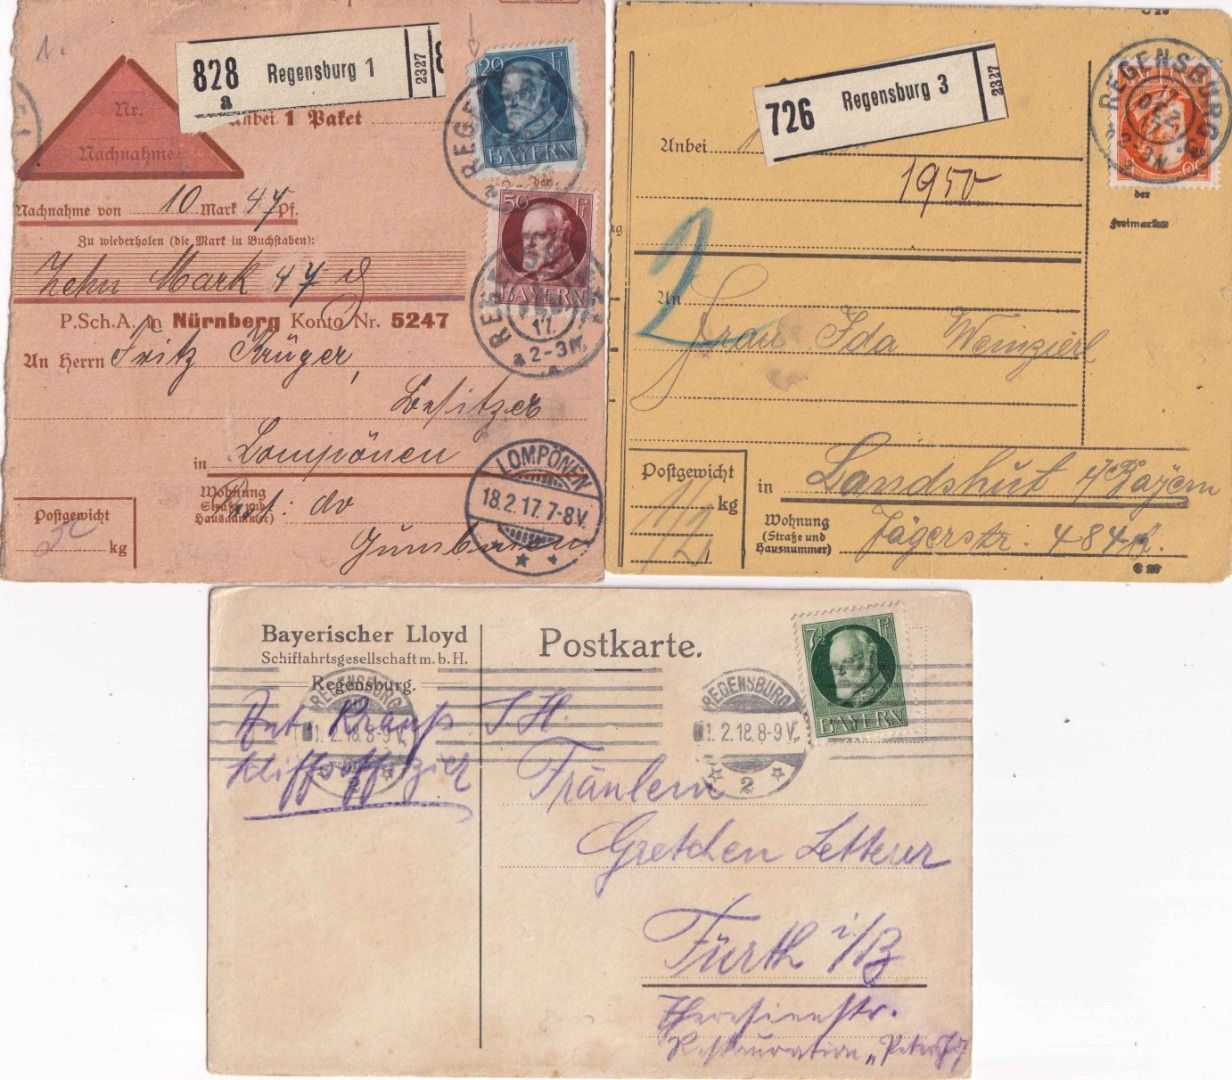 1.
828
a
Regensburg 1
2327
Nr.
Nachnahme
Anbei 1 Paket
20 Pf
BAYERN
50 Pf
BAYERN
Nachnahme von 10 Mark 47 Pf.
Zu wiederholen (die Mark in Buchstaben):
Zehn Mark 47 d
P.Sch.A. in Nürnberg Konto Nr. 5247
An Herrn Fritz Krüger,
Besitzer
in Lompönen
Wohnung
Straße und
Hausnummer)
Postgewicht
kg
17
a 2-3N.
LOMPÖNEN
18.2.17. 7-8V.
726
Regensburg 3
2327
REGENSBURG
17
DEZ
a 2-3N.
Anbei
der
Freimarken
1950
2
An Frau Ida Weinzierl
Postgewicht
1/2 kg
in Landshut i/Bayern
Wohnung
(Straße und
Hausnummer)
Jägerstr. 484
C 27
Bayerischer Lloyd
Schiffahrtsgesellschaft m. b. H.
Regensburg.
Postkarte.
7½ Pf
BAYERN
REGENSBURG
1. 2. 18. 8-9V.
2
REGENSBURG
1. 2. 18. 8-9V.
2
Fräulein
Gretchen Letterer
Fürth i/B
Theresienstr.
Restauration